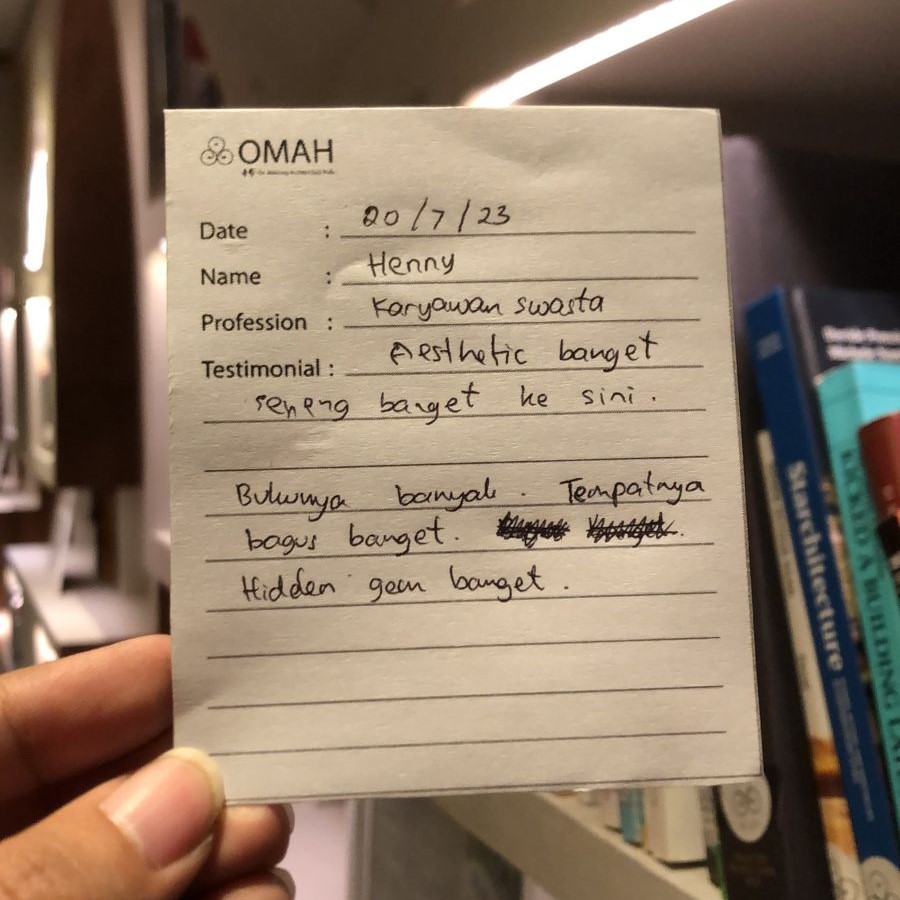 OMAH
Date : 20/7/23
Name : Henny
Profession : Karyawan swasta
Testimonial : Aesthetic banget
seneng banget ke sini.
Bukunya banyak. Tempatnya
bagus banget.
Hidden gem banget.
Starchitecture
A BUILDING